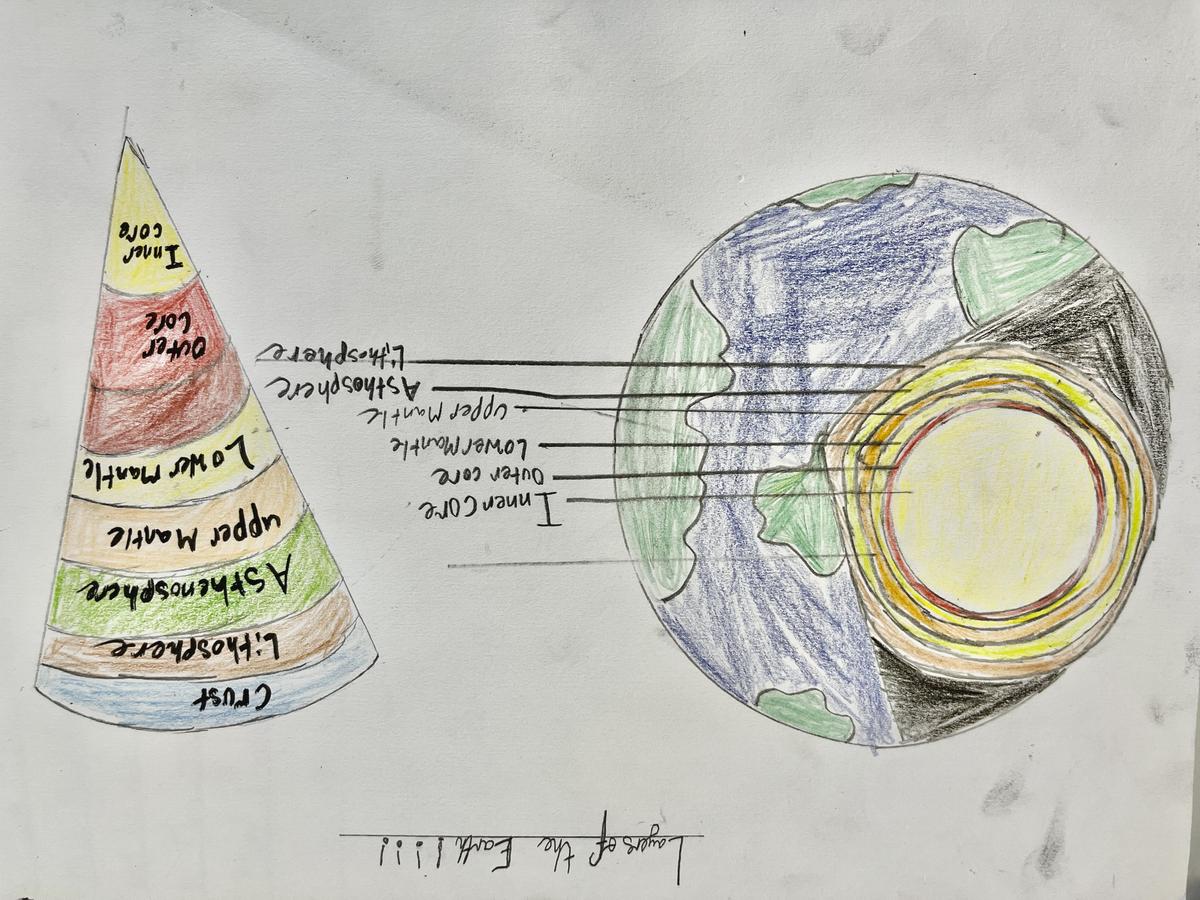 Layers of the Earth!!!!
Inner Core.
Outer core
Lower Mantle
upper Mantle
Asthosphere
Lithosphere
Crust
Lithosphere
Asthenosphere
upper Mantle
Lower Mantle
Outer
Core
Inner
core